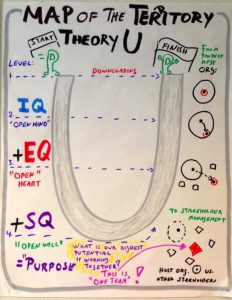 MAP OF THE TERITORY
THEORY U
START
FINISH
LEVEL:
1.
DOWNLOADING
ORG:
IQ
2.
"OPEN MIND"
+EQ
3.
"OPEN"
HEART
+SQ
4.
"OPEN WILL"
="PURPOSE"
WHAT IS OUR HIGHEST
POTENTIAL
WORKING
TOGETHER?
"THIS IS
'ONE TEAM'"
TO STAKEHOLDER
MANAGEMENT
HOST ORG. US
OTHER STAKEHOLDERS